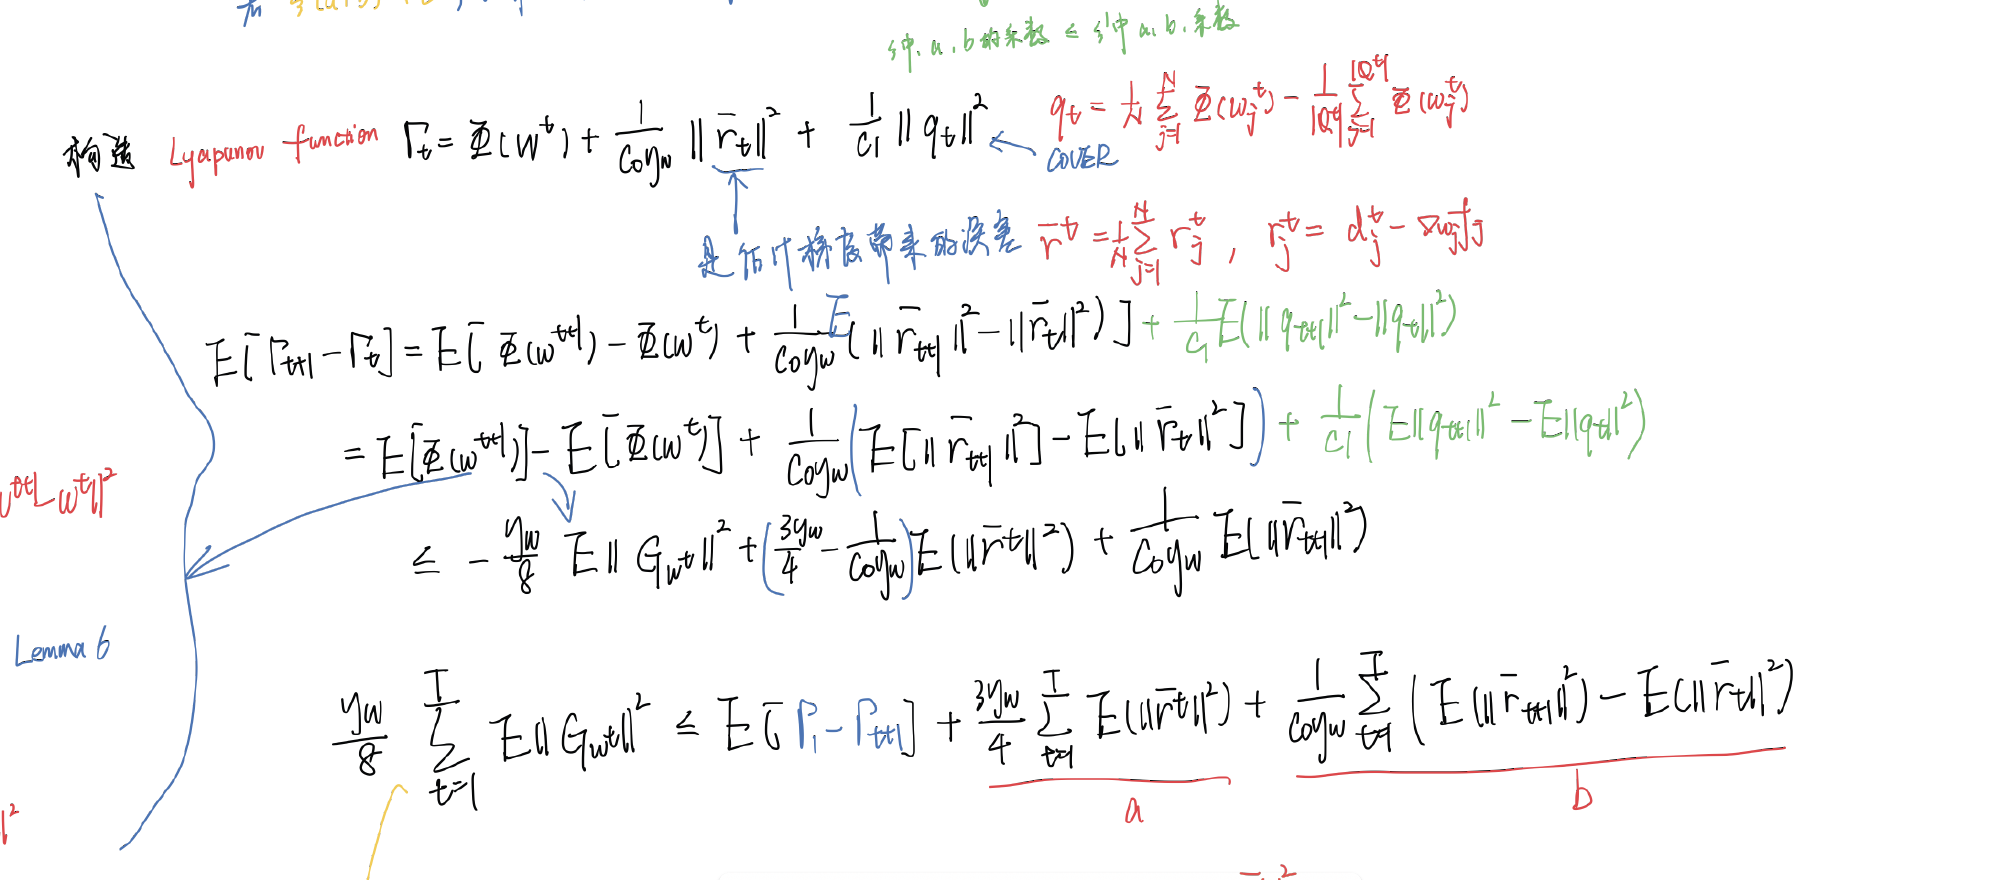 ξ中, a, b 的系数 ≤ ξ'中 a, b, 系数
构造 Lyapunov function Γ_t = Φ(w^t) + 1/(c_0 y_w) ‖r̄_t‖² + 1/c_1 ‖q_t‖²
q_t = 1/N Σ_{j=1}^{N} Φ(w_j^t) - 1/|Q^t| Σ_{j=1}^{|Q^t|} Φ(w_j^t)
COVER
是估计梯度带来的误差 r̄^t = 1/N Σ_{j=1}^{N} r_j^t , r_j^t = d_j^t - ∇_{w_j} f_j
E[Γ_{t+1} - Γ_t] = E[Φ(w^{t+1}) - Φ(w^t) + 1/(c_0 y_w) E(‖r̄_{t+1}‖² - ‖r̄_t‖²)] + 1/c_1 E(‖q_{t+1}‖² - ‖q_t‖²)
= E[Φ(w^{t+1})] - E[Φ(w^t)] + 1/(c_0 y_w) (E[‖r̄_{t+1}‖²] - E[‖r̄_t‖²]) + 1/c_1 (E‖q_{t+1}‖² - E‖q_t‖²)
w^{t+1} - w^t‖²
≤ - y_w/8 E‖G_{w^t}‖² + (3y_w/4 - 1/(c_0 y_w)) E(‖r̄^t‖²) + 1/(c_0 y_w) E(‖r̄_{t+1}‖²)
Lemma 6
y_w/8 Σ_{t=1}^{T} E‖G_{w^t}‖² ≤ E[Γ_1 - Γ_{t+1}] + 3y_w/4 Σ_{t=1}^{T} E(‖r̄^t‖²) + 1/(c_0 y_w) Σ_{t=1}^{T} (E(‖r̄_{t+1}‖²) - E(‖r̄_t‖²)
a
b
‖²